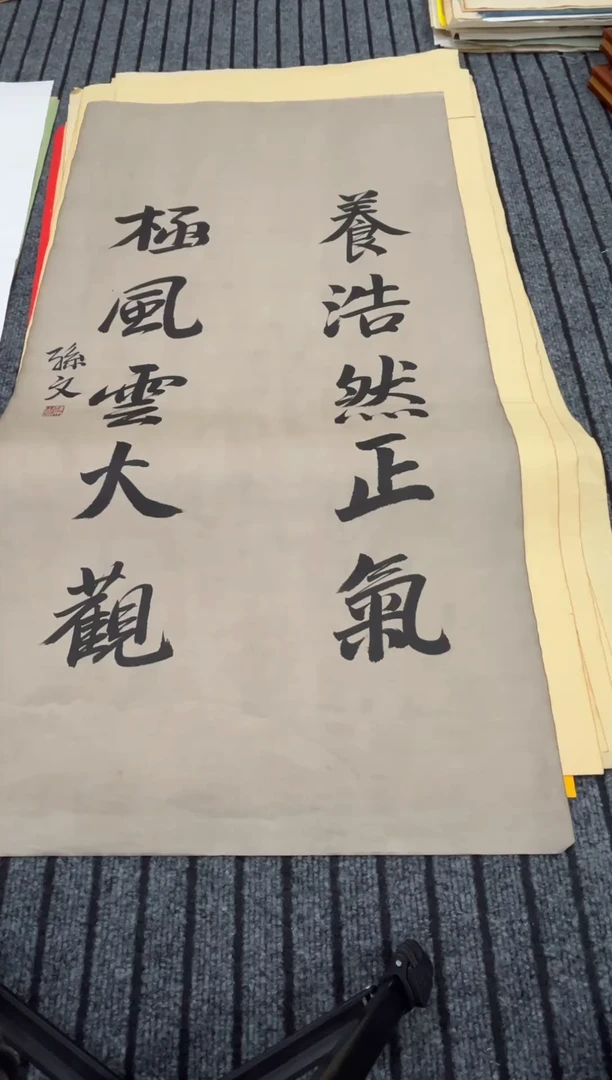 養浩然正氣
極風雲大觀
孫文